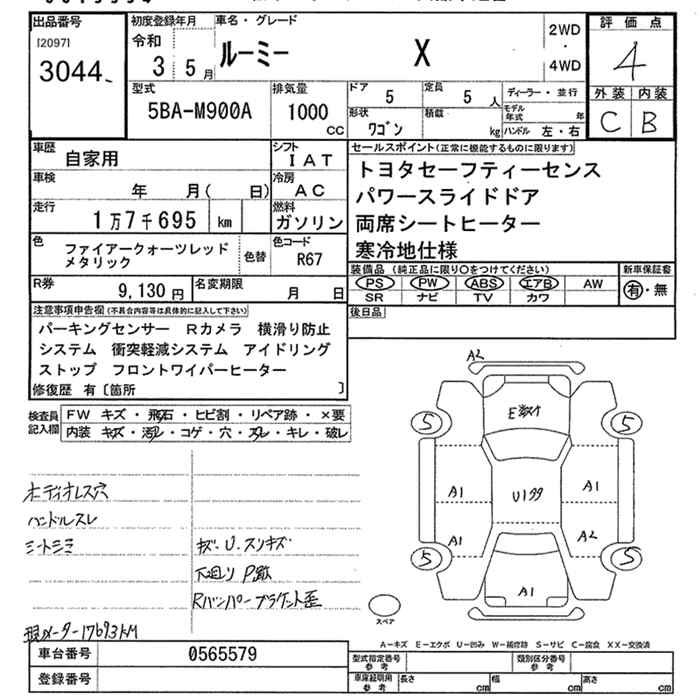 出品番号
[2097]
3044
初度登録年月
令和
3 5月
車名・グレード
ルーミー X
2WD
・
4WD
評価点
4
外装 内装
C B
型式
5BA-M900A
排気量
1000
cc
ドア 5
定員 5 人
形状 ワゴン
積載 kg
ディーラー・並行
モデル年式 年
ハンドル 左・右
車歴 自家用
シフト IAT
車検 年 月( 日)
冷房 AC
走行 1万7千695 km
燃料 ガソリン
色 ファイアークォーツレッド
メタリック
色替
色コード R67
R券 9,130円
名変期限 月 日
セールスポイント(正常に機能するものに限ります)
トヨタセーフティーセンス
パワースライドドア
両席シートヒーター
寒冷地仕様
装備品 (純正品に限り○をつけてください)
PS PW ABS エアB AW
SR ナビ TV カワ
新車保証書
有・無
後日品
注意事項申告欄(不具合内容等は具体的に記入して下さい)
パーキングセンサー Rカメラ 横滑り防止
システム 衝突軽減システム アイドリング
ストップ フロントワイパーヒーター
修復歴 有〔箇所 〕
検査員
記入欄
FW キズ・飛石・ヒビ割・リペア跡・×要
内装 キズ・汚レ・コゲ・穴・スレ・キレ・破レ
ボディオレス穴
ハンドルスレ
シートシミ
キズ・U・スリキズ
下廻り P跡
Rバンパーブラケット歪
現メーター17693KM
車台番号 0565579
登録番号
A2
E数ケ
5 5
A1 U199 A1
A1 A2
5 5
A1
スペア
A-キズ E-エクボ U-凹み W-補修跡 S-サビ C-腐食 XX-交換済
型式指定番号
参考
類別区分番号
参考
車庫証明用
参考
長さ cm
幅 cm
高さ cm